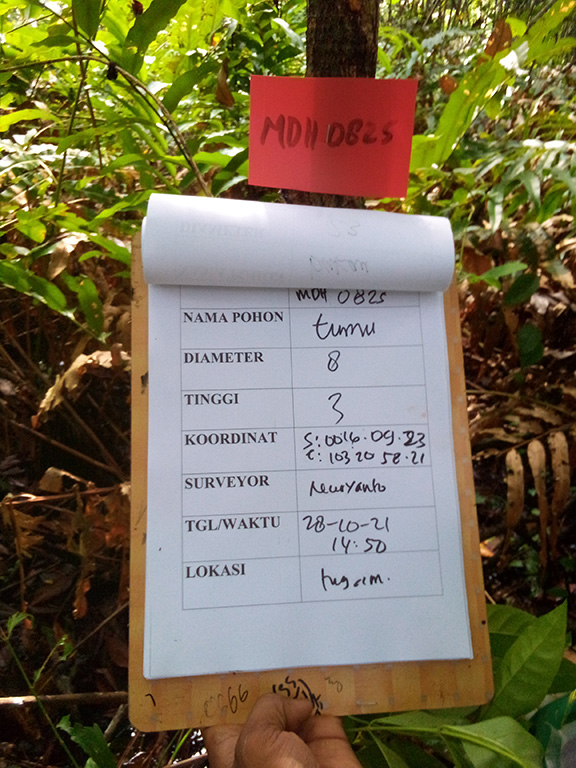 MDH 0825
MDH 0825
NAMA POHON tumu
DIAMETER 8
TINGGI 3
KOORDINAT S: 0016.09.23
E: 103 20 58.21
SURVEYOR Newyanto
TGL/WAKTU 28-10-21
14:50
LOKASI